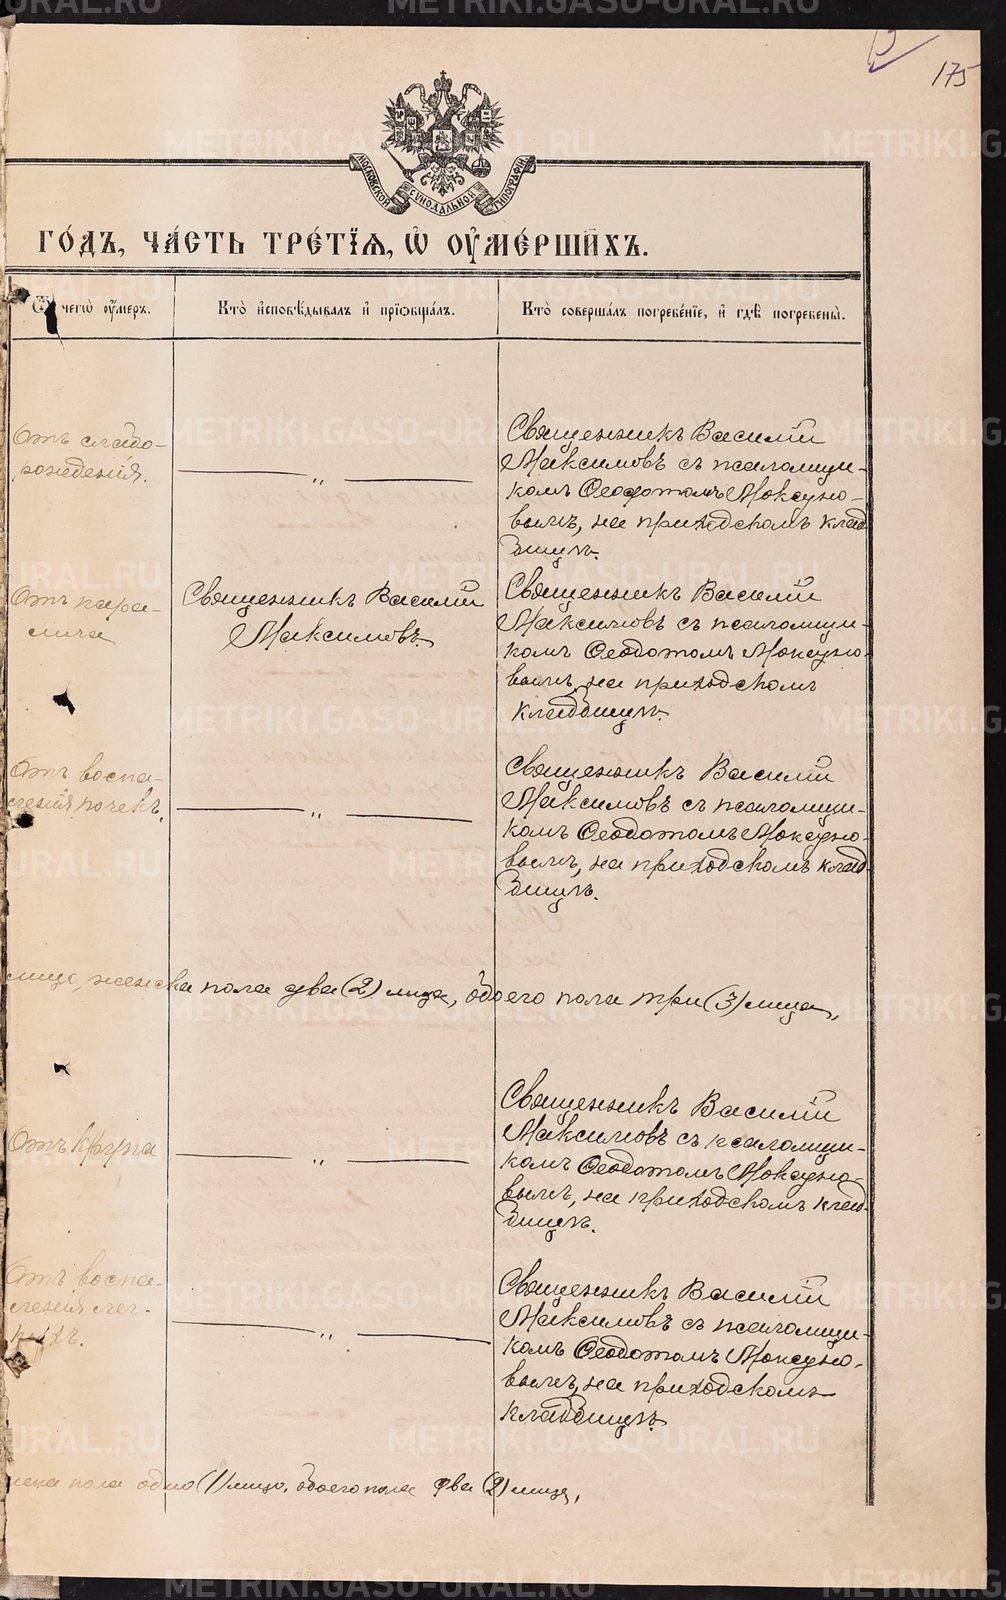 175
МОСКОВСКОЙ СУНОДАЛЬНОЙ ТИПОГРАФІИ
ГО́ДЪ, ЧА́СТЬ ТРЕ́ТІѦ, Ѡ ОУМЕ́РШИХЪ.
Ѿ чегѡ оумеръ.
Кто̀ и҆сповѣ́дывалъ и҆ прїѡбща́лъ.
Кто̀ соверша́лъ погребе́нїе, и҆ гдѣ̀ погребены̀.
Отъ слабо-
рожденія.
— „ —
Священникъ Василій
Максимовъ съ псаломщи-
комъ Ѳеодотомъ Моксуно-
вымъ, на приходскомъ клад
бищѣ.
Отъ пара-
лича
Священникъ Василій
Максимовъ.
Священникъ Василій
Максимовъ съ псаломщи-
комъ Ѳеодотомъ Моксуно-
вымъ, на приходскомъ
кладбищѣ.
Отъ воспа-
ленія почекъ.
— „ —
Священникъ Василій
Максимовъ съ псаломщи-
комъ Ѳеодотомъ Моксуно-
вымъ, на приходскомъ клад-
бищѣ.
лицо, женска пола два (2) лица, обоего пола три (3) лица,
Отъ крупа
— „ —
Священникъ Василій
Максимовъ съ псаломщи-
комъ Ѳеодотомъ Моксуно-
вымъ, на приходскомъ клад-
бищѣ.
Отъ воспа-
ленія лег-
кихъ.
— „ —
Священникъ Василій
Максимовъ съ псаломщи-
комъ Ѳеодотомъ Моксуно-
вымъ, на приходскомъ
кладбищѣ.
пола одно (1) лицо, обоего пола два (2) лица,
METRIKI.GASO-URAL.RU